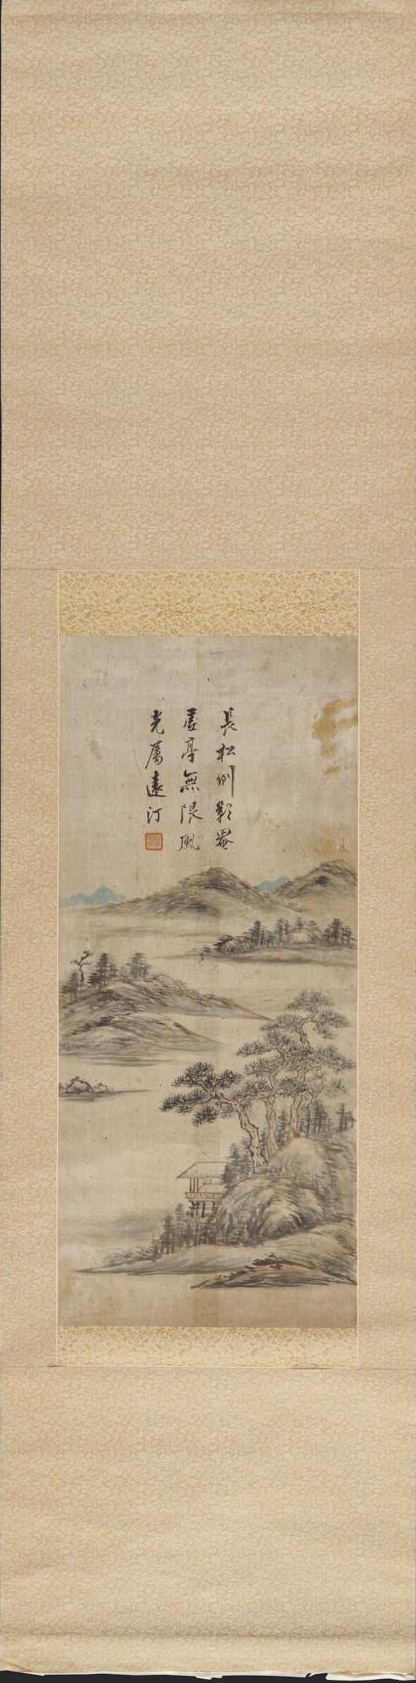 長松倒影罨
虛亭無限風
光屬遠汀